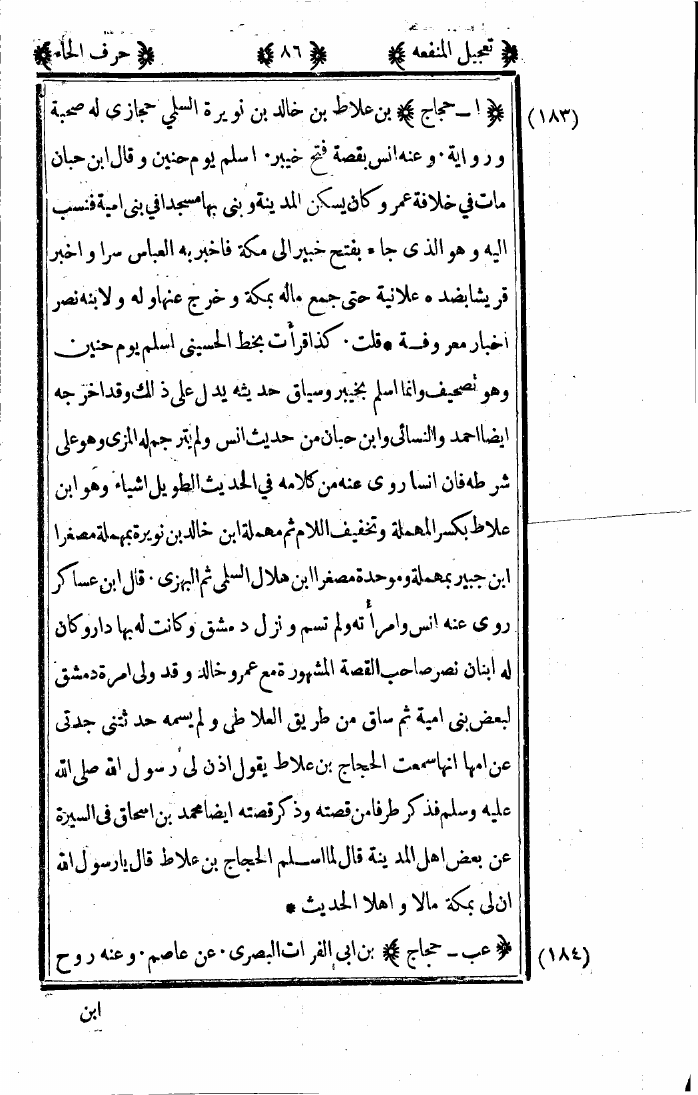 ﴿ تعجيل المنفعه ﴾ ﴿ ٨٦ ﴾ ﴿ حرف الحاء ﴾
(١٨٣) ﴿ ا ـ حجاج ﴾ بن علاط بن خالد بن نويرة السلمي حجازى له صحبة
ورواية · وعنه انس بقصة فتح خيبر · اسلم يوم حنين وقال ابن حبان
مات في خلافة عمر وكان يسكن المدينة وبنى بها مسجدا في بنى امية فنسب
اليه وهو الذى جاء بفتح خيبر الى مكة فاخبر به العباس سرا واخبر
قريشا بضده علانية حتى جمع ماله بمكة وخرج عنها وله ولابنه نصر
اخبار معروفة * قلت · كذا قرأت بخط الحسينى اسلم يوم حنين
وهو تصحيف وانما اسلم بخيبر وسياق حديثه يدل على ذلك وقد اخرجه
ايضا احمد والنسائى وابن حبان من حديث انس ولم يترجم له المزى وهو على
شرطه فان انسا روى عنه من كلامه في الحديث الطويل اشياء وهو ابن
علاط بكسر المهملة وتخفيف اللام ثم مهملة ابن خالد بن نويرة بمهملة مصغرا
ابن جبير بمهملة وموحدة مصغرا ابن هلال السلمى ثم البهزى · قال ابن عساكر
روى عنه انس وامرأته ولم تسم ونزل دمشق وكانت له بها دار وكان
له ابنان نصر صاحب القصة المشهورة مع عمر وخالد وقد ولى امرة دمشق
لبعض بنى امية ثم ساق من طريق العلاطى ولم يسمه حدثتنى جدتى
عن امها انها سمعت الحجاج بن علاط يقول اذن لى رسول الله صلى الله
عليه وسلم فذكر طرفا من قصته وذكر قصته ايضا محمد بن اسحاق فى السيرة
عن بعض اهل المدينة قال لما اسلم الحجاج بن علاط قال يا رسول الله
ان لى بمكة مالا واهلا الحديث *
(١٨٤) ﴿ عب ـ حجاج ﴾ بن ابى الفرات البصرى · عن عاصم · وعنه روح
ابن